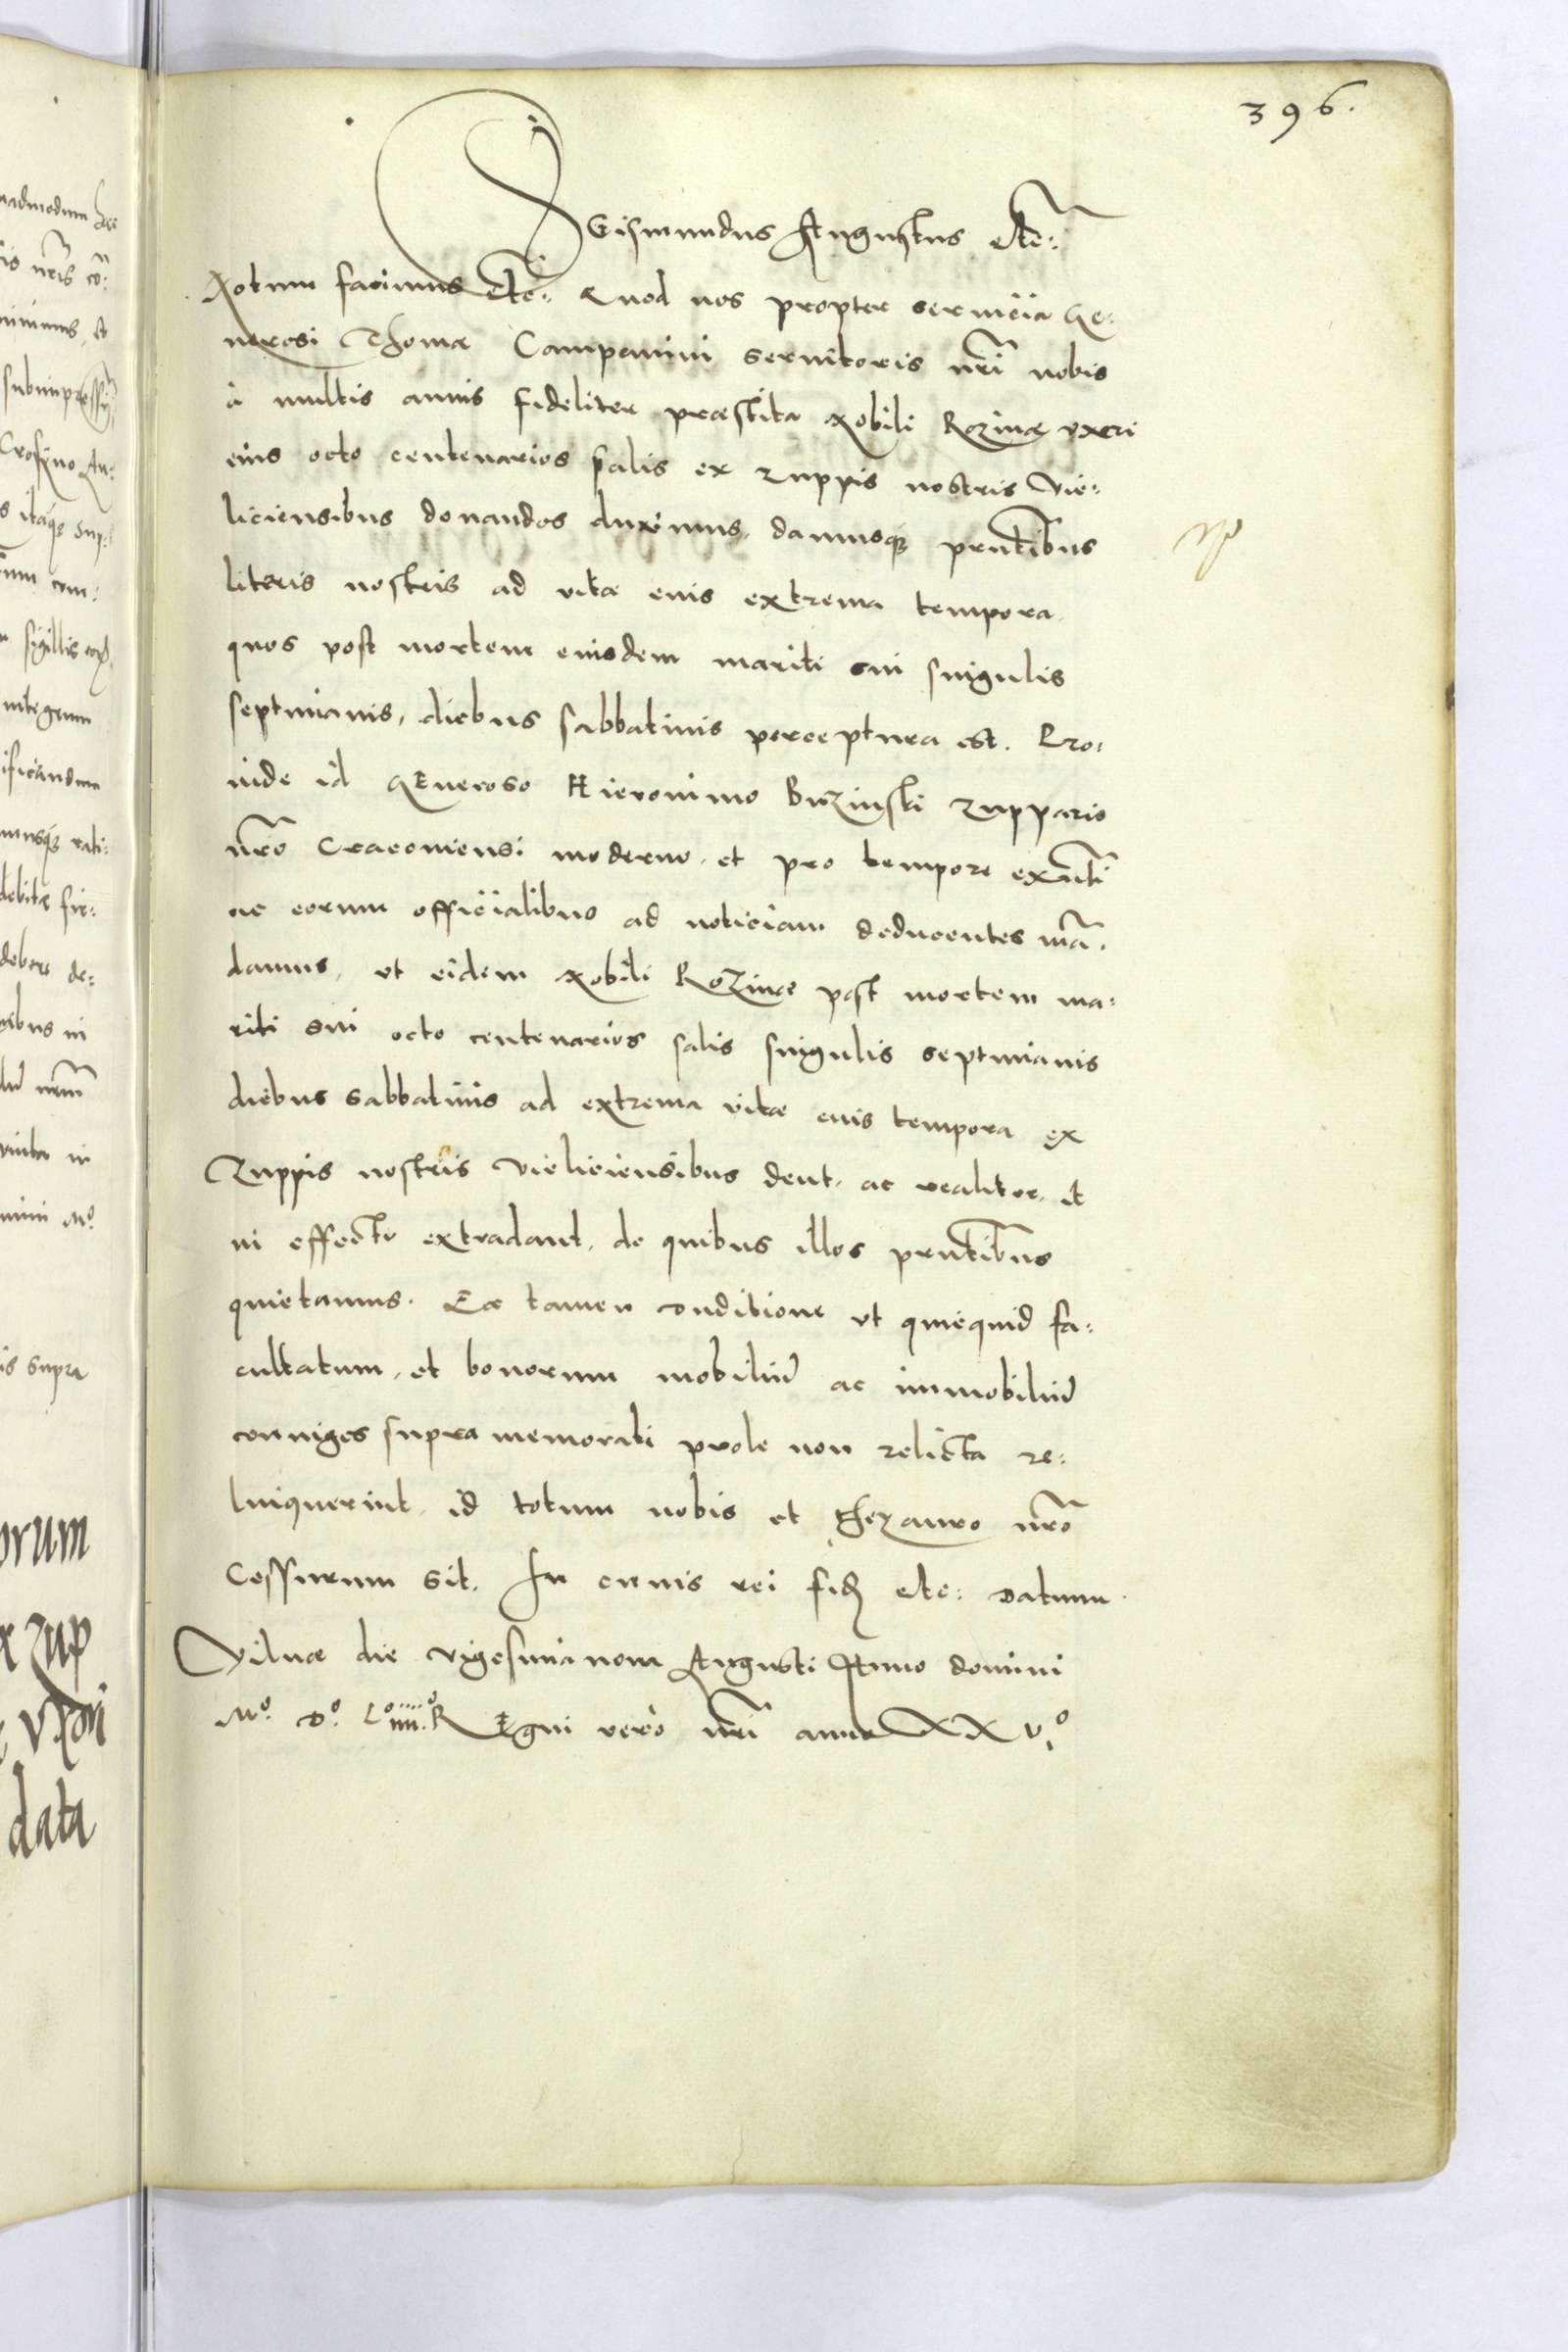 396.
Sigismundus Augustus etc:
Notum facimus etc: Quod nos propter servicia Ge:
nerosi Thomæ Campanini servitoris nrī nobis
à multis annis fideliter præstita Nobili Rozinæ vxori
eius octo centenarios salis ex zuppis nostris Vie:
liciensibus donandos duximus, damusq3 prntībus
literis nostris ad vitæ eius extrema tempora
quos post mortem eiusdem mariti sui singulis
septimanis, diebus sabbatinis perceptura est. Pro:
inde id Generoso Hieronimo Buzinski Zuppario
nrō Cracoviensi moderno, et pro tempore exnti
ac eorum officialibus ad noticiam deducentes mā:
damus, ut eidem Nobili Rozinæ post mortem ma:
riti sui octo centenarios salis singulis septimanis
diebus sabbatinis ad extrema vitæ eius tempora ex
Zuppis nostris Vieliciensibus dent, ac realiter, et
in effectu extradant, de quibus illos prntībus
quietamus. Ea tamen conditione ut quicquid fa:
cultatum, et bonorum mobiliū ac immobiliū
coniuges supra memorati prole non relicta re:
linquerint, id totum nobis et thezauro nrō
cessurum sit. In cuius rei fid etc: Datum
Vilnæ die vigesima nona Augusti Anno domini
Mº. Dº. Lº iiiiº. Regni vero nrī anno XXVº
admodum
subimpress
itaq3
com:
sigillis
integrum
ificandum
debitæ
debere de:
is supra
orum
zup
vxori
data